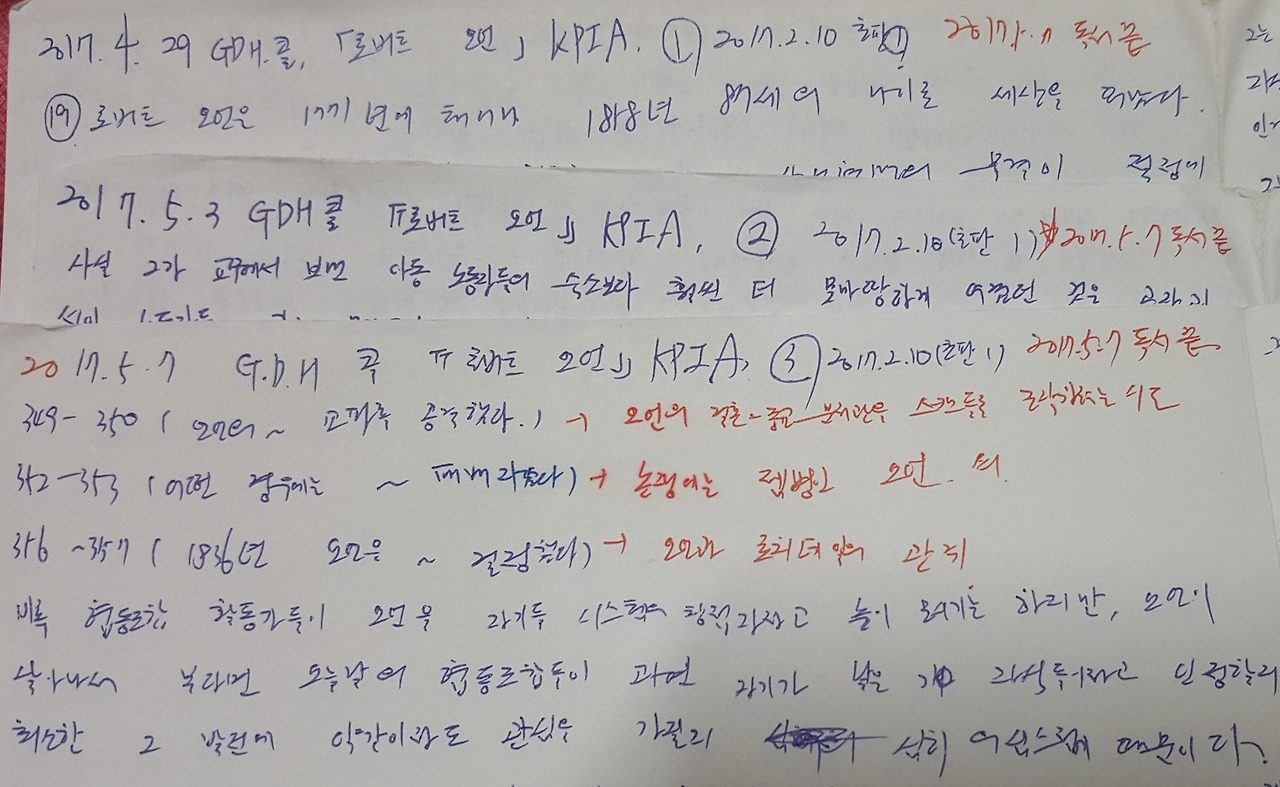 2017. 4. 29 GDH.콜, 『로버트 오언』 KPIA. ① 2017.2.10 초판1 2017.5.7 독서끝
⑲ 로버트 오언은 1771년에 태어나 1858년 87세의 나이로 세상을 떠났다.
2017. 5. 3 GDH콜 『로버트 오언』 KPIA, ② 2017.2.10(초판 1) 2017.5.7 독서끝
사실 그가 교구에서 보낸 아동 노동자들의 숙소보다 훨씬 더 못마땅하게 여겼던 것은
2017.5.7 G.D.H 콕 『로버트 오언』 KPIA, ③ 2017.2.10(초판 1) 2017.5.7 독서끝
349-350 ( 오언의 ~ 교파를 공격했다.) → 오언의 결혼-종교 문서관은 스캔들을 조작하려는 시도
352-353 (어떤 경우에는 ~ 때내라였다) → 논쟁에는 젬병인 오언
356 ~357 ( 1836년 오언은 ~ 결정했다) → 오언과 로치데일의 관계
비록 협동조합 활동가들이 오언을 자기들 시스템의 창설자라고 높이 여기는 하지만, 오언이
살아나서 본다면 오늘날의 협동조합들이 과연 자기가 낳은 자식들이라고 인정할리
최소한 그 발전에 약간이라도 관심을 가질리 심히 의심스럽기 때문이다.